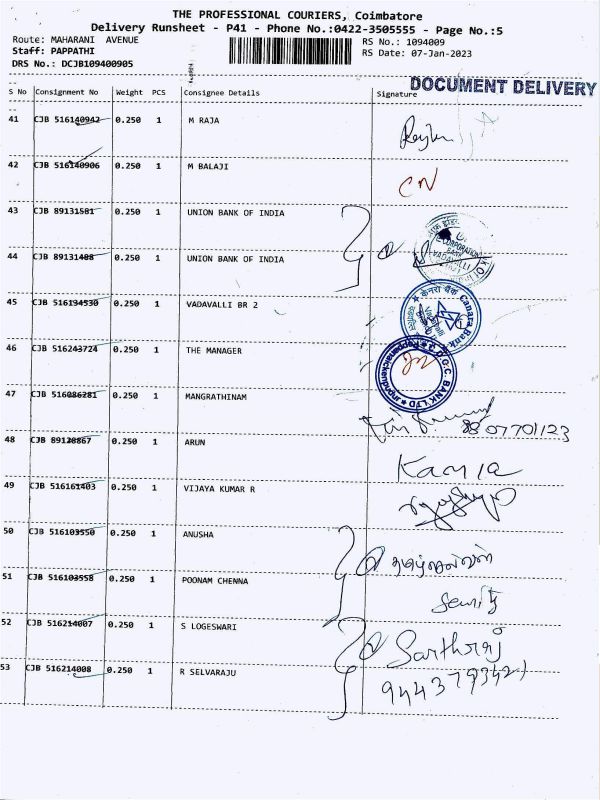 THE PROFESSIONAL COURIERS, Coimbatore
Delivery Runsheet - P41 - Phone No.:0422-3505555 - Page No.:5
Route: MAHARANI AVENUE
RS No.: 1094009
Staff: PAPPATHI
RS Date: 07-Jan-2023
DRS No.: DCJB109400905
DOCUMENT DELIVERY
S No Consignment No Weight PCS Consignee Details Signature
41 CJB 516140942 0.250 1 M RAJA
42 CJB 516140906 0.250 1 M BALAJI
CN
43 CJB 89131581 0.250 1 UNION BANK OF INDIA
CORPORATION
VADAVALLI
44 CJB 89131488 0.250 1 UNION BANK OF INDIA
केनरा बैंक Canara Bank
45 CJB 516134530 0.250 1 VADAVALLI BR 2
46 CJB 516243724 0.250 1 THE MANAGER
D.G.C. BANK LTD
47 CJB 516086281 0.250 1 MANGRATHINAM
48 CJB 89120867 0.250 1 ARUN
49 CJB 516161403 0.250 1 VIJAYA KUMAR R
50 CJB 516103550 0.250 1 ANUSHA
51 CJB 516103558 0.250 1 POONAM CHENNA
52 CJB 516214007 0.250 1 S LOGESWARI
Sarthraj
53 CJB 516214008 0.250 1 R SELVARAJU